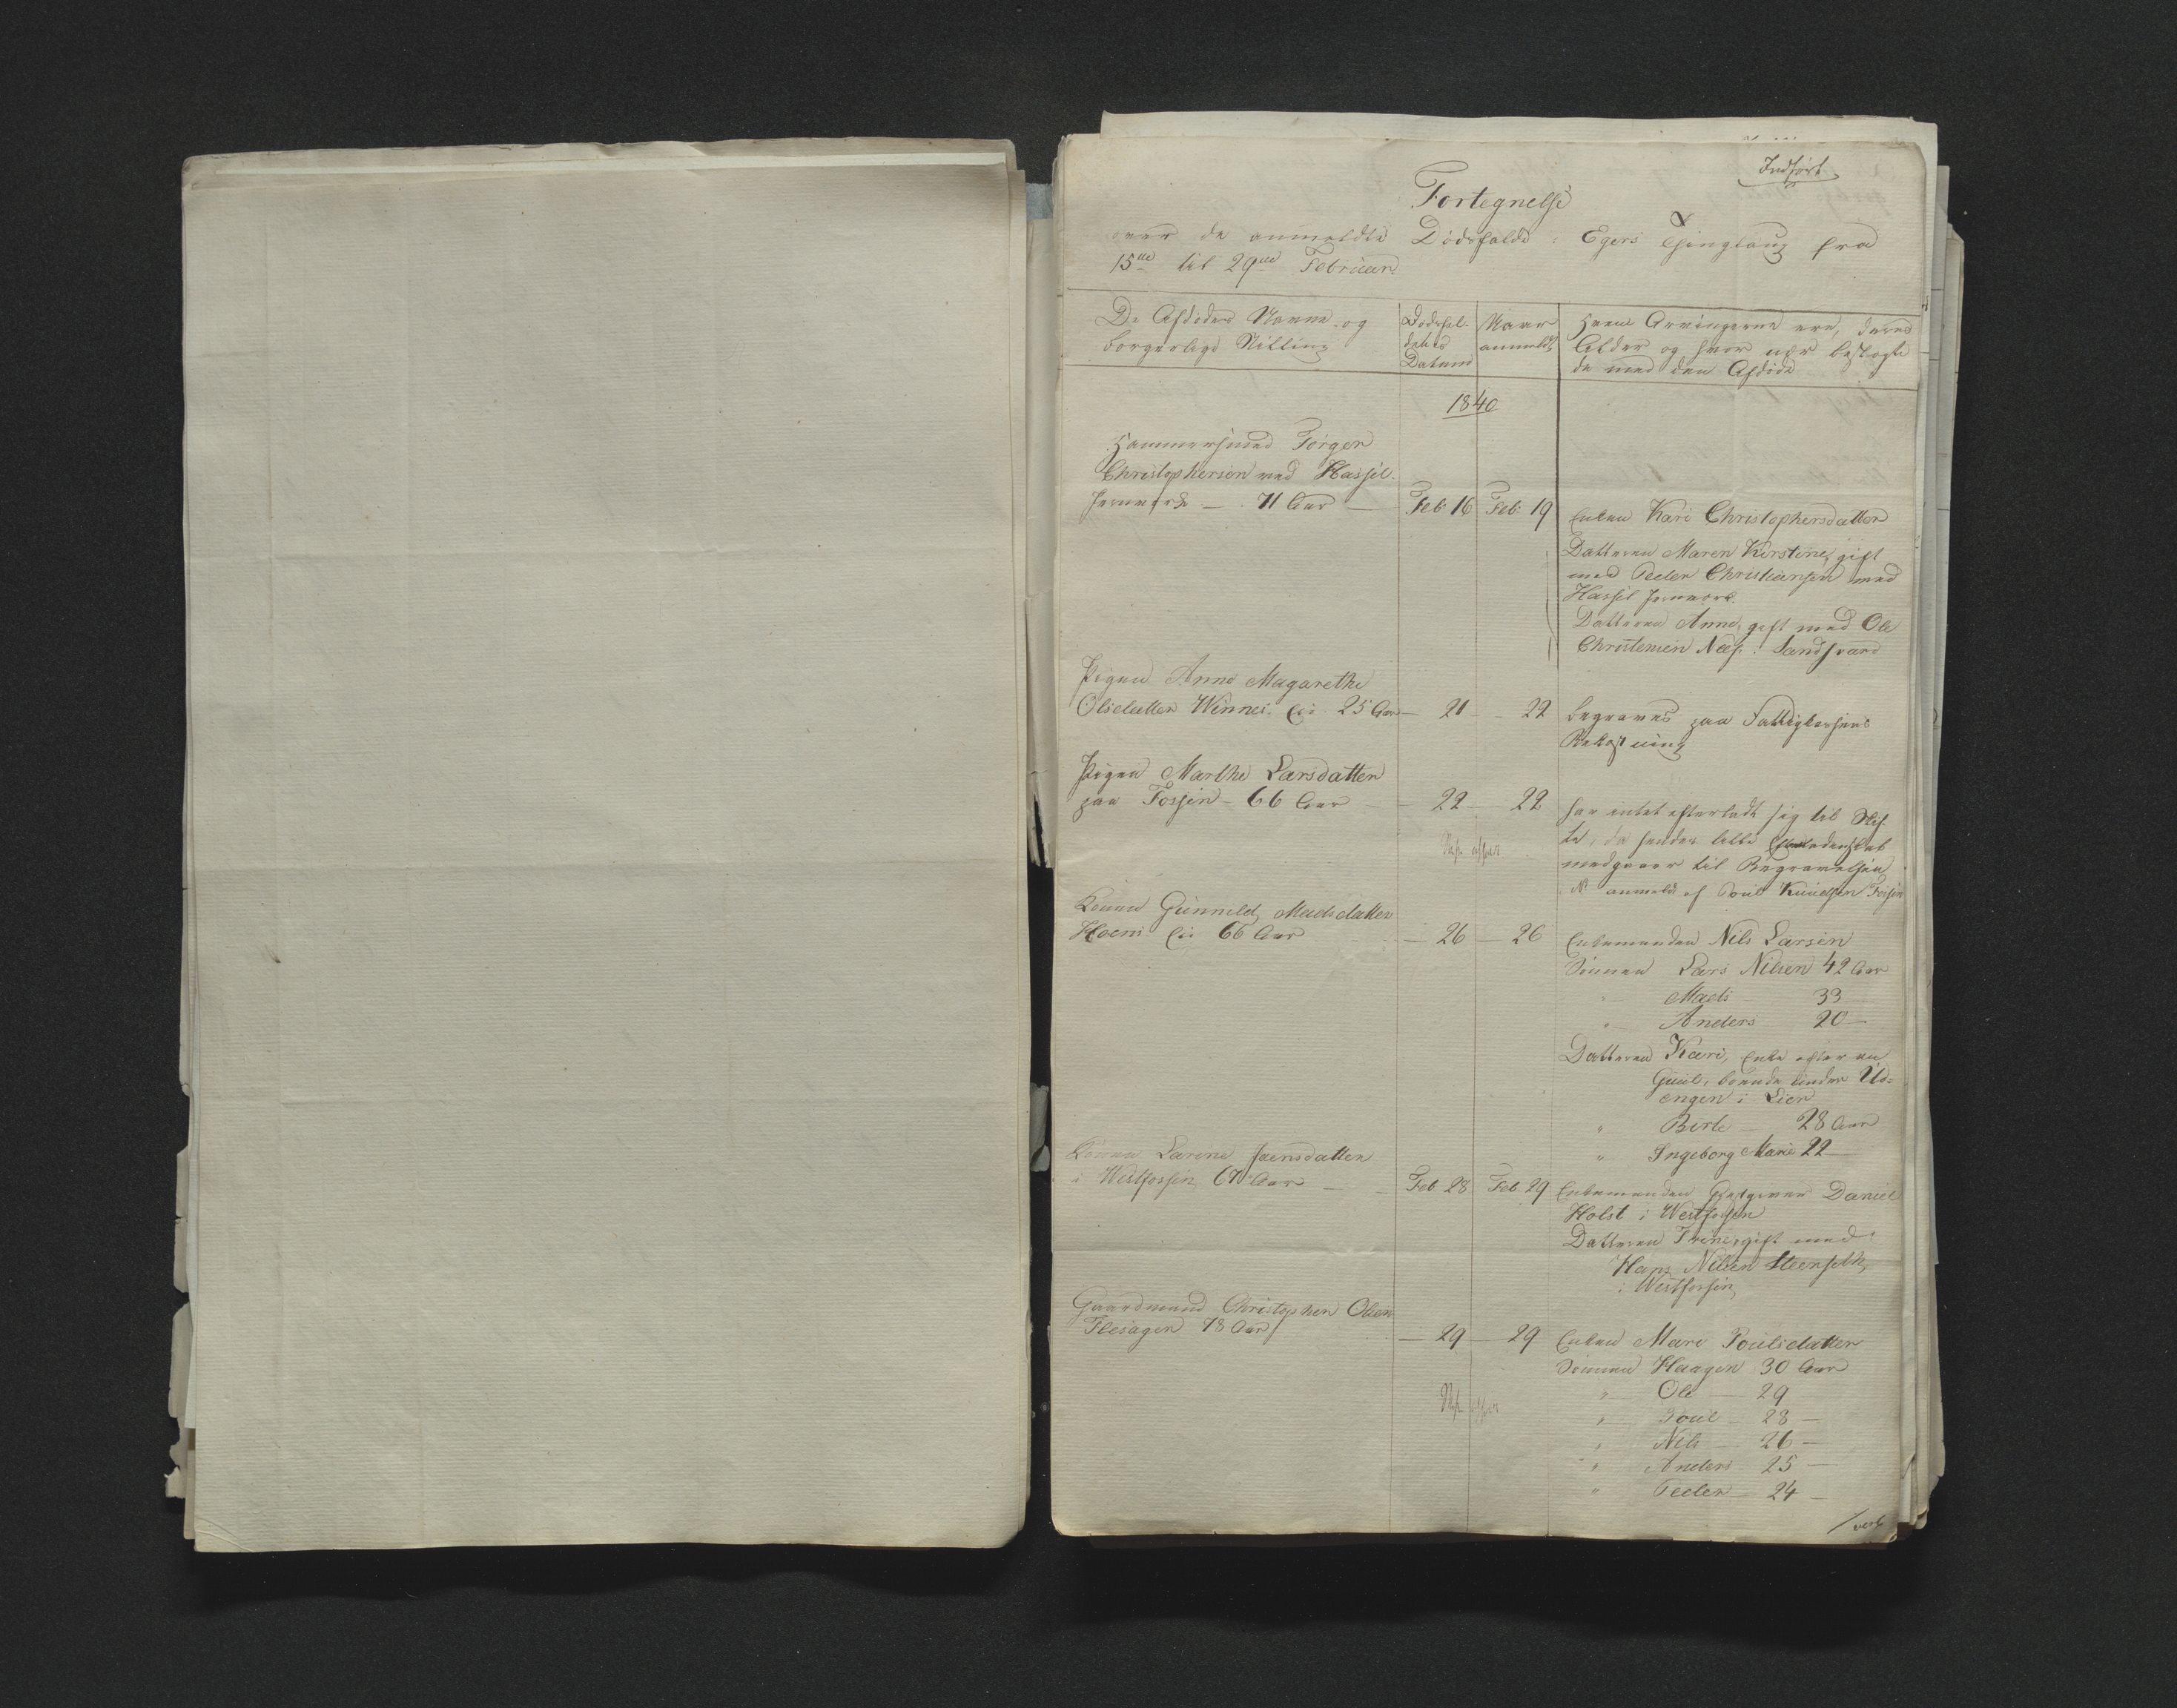 Indført
Fortegnelse
over de anmeldte Dødsfalde i Egers Thinglaug fra
15de til 29de Februar
De Afdødes Navne og
borgerlige Stilling
Dødsfal-
dets
Datum
Naar
anmeldt
Hvem Arvingerne ere, deres
Alder og hvor nær beslægte
de med den Afdøde
1840
Hammersmed Jørgen
Christophersen ved Hassel
Jernværk — 71 Aar — Feb 16 Feb. 19
Enken Kari Christophersdatter
Datteren Maren Kirstine, gift
med Peder Christiansen ved
Hassel Jernværk.
Datteren Anne, gift med Ole
Christensen Næs i Sandsvær
Pigen Anne Magarethe
Olsdatter Winnes Eie 25 Aar — 21 — 22
begraves paa Fattigkassens
Bekostning
Pigen Marthe Larsdatter
paa Fossen 66 Aar — 22 — 22
har intet efterladt sig til Skif-
te, da hendes lille Eiendenskab
medgaaer til Begravelsen
anmeldt af Poul Knudsen Fossen
Konen Gunnild Madsdatter
Hoens Eie 66 Aar — 26 — 26
Enkemanden Nils Larsen
Sønnen Lars Nilsen 42 Aar
" Mads — 33 —
" Anders 20 —
Datteren Kari, Enke efter en
Guul, boende under Ud-
engen i Lier
" Birte — 28 Aar
" Ingeborg Marie 22 —
Konen Karine Jaensdatter
i Westfossen 67 Aar — Feb. 28 Feb. 29
Enkemanden Gjestgiver Daniel
Holst i Westfossen
Datteren Trine, gift med
Hans Nilsen Steenseth,
i Westfossen,
Gaardmand Christopher Olsen
Flesagen 78 Aar — 29 — 29
Enken Mari Poulsdatter
Sønnen Haagen 30 Aar
" Ole — 29
" Poul — 28 —
" Nils — 26 —
" Anders 25 —
" Peder — 24 —
/vert